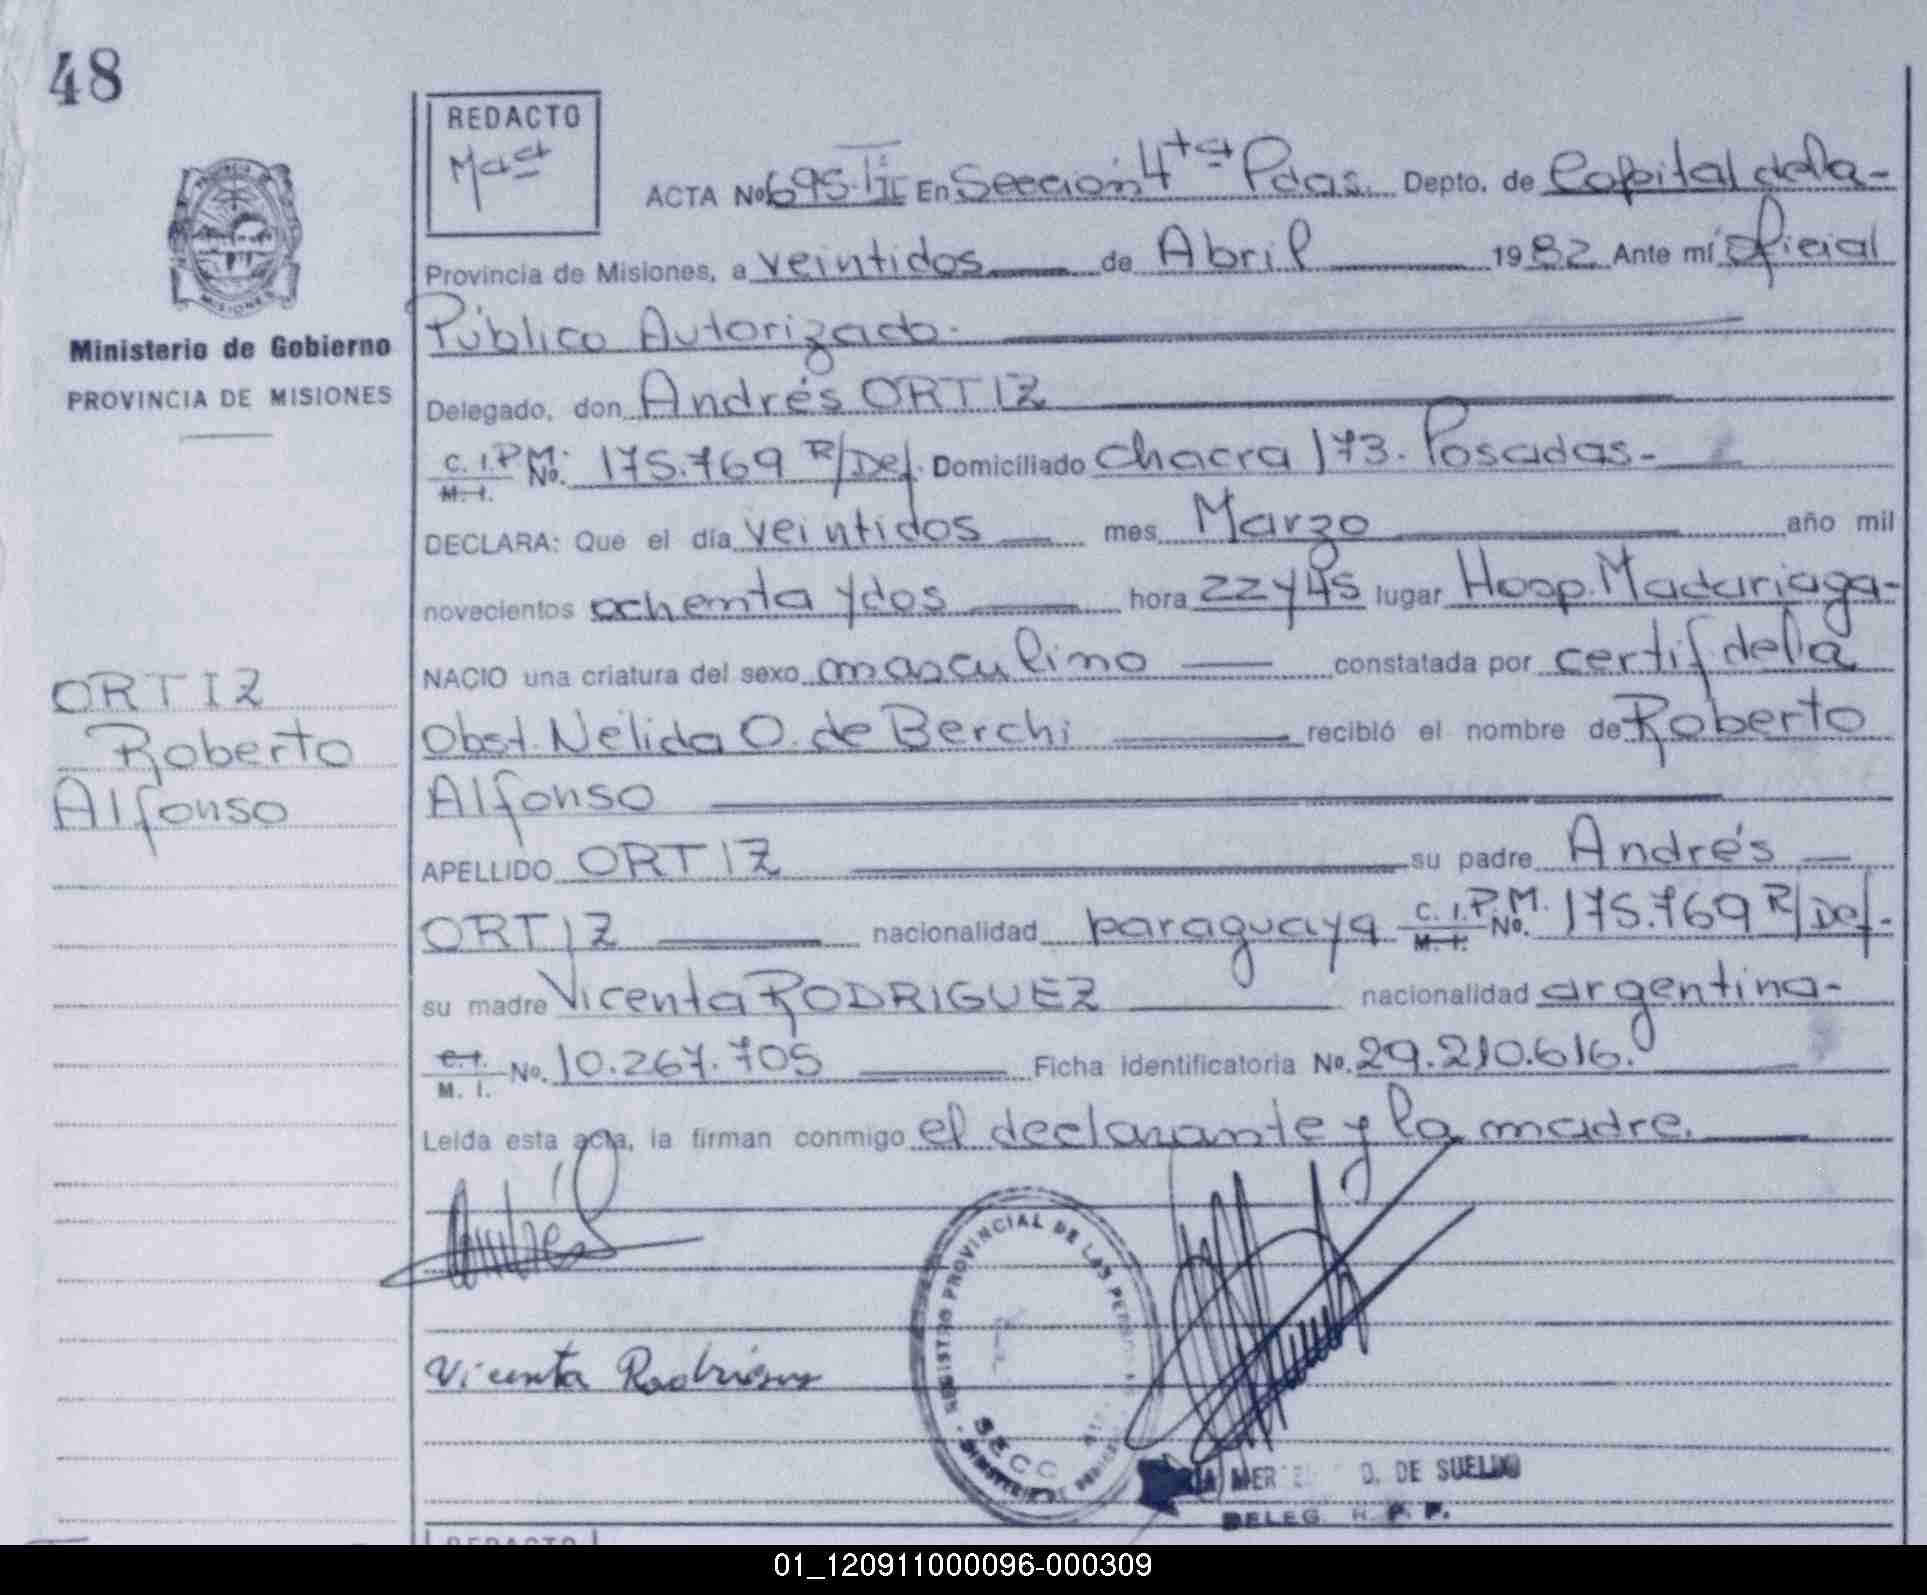 48
REDACTO
Ma
ACTA No 695-TII En Sección 4ta Pdas. Depto. de Capital de la-
Provincia de Misiones, a veintidos de Abril 1982 Ante mí Oficial
Público Autorizado.
Ministerio de Gobierno
PROVINCIA DE MISIONES
Delegado, don Andrés ORTIZ
C. I. P.M. No. 175.769 R/Def. Domiciliado Chacra 173. Posadas-
M. I.
DECLARA: Que el día veintidos mes Marzo año mil
novecientos ochenta y dos hora 22 y 45 lugar Hosp. Madariaga-
NACIO una criatura del sexo masculino constatada por certif de la
ORTIZ
Roberto
Alfonso
Obst. Nélida O. de Berchi recibió el nombre de Roberto
Alfonso
APELLIDO ORTIZ su padre Andrés
ORTIZ nacionalidad paraguaya C. I. P.M. No. 175.769 R/Def.
M. I.
su madre Vicenta RODRIGUEZ nacionalidad argentina-
C. I.
M. I. No. 10.267.705 Ficha identificatoria No. 29.210.616.
Leída esta acta, la firman conmigo el declarante y la madre.
Andrés
Vicenta Rodriguez
REGISTRO PROVINCIAL DE LAS PERSONAS
SECC
DE SUELDO
DELEG. R. P. P.
REDACTO
01_120911000096-000309